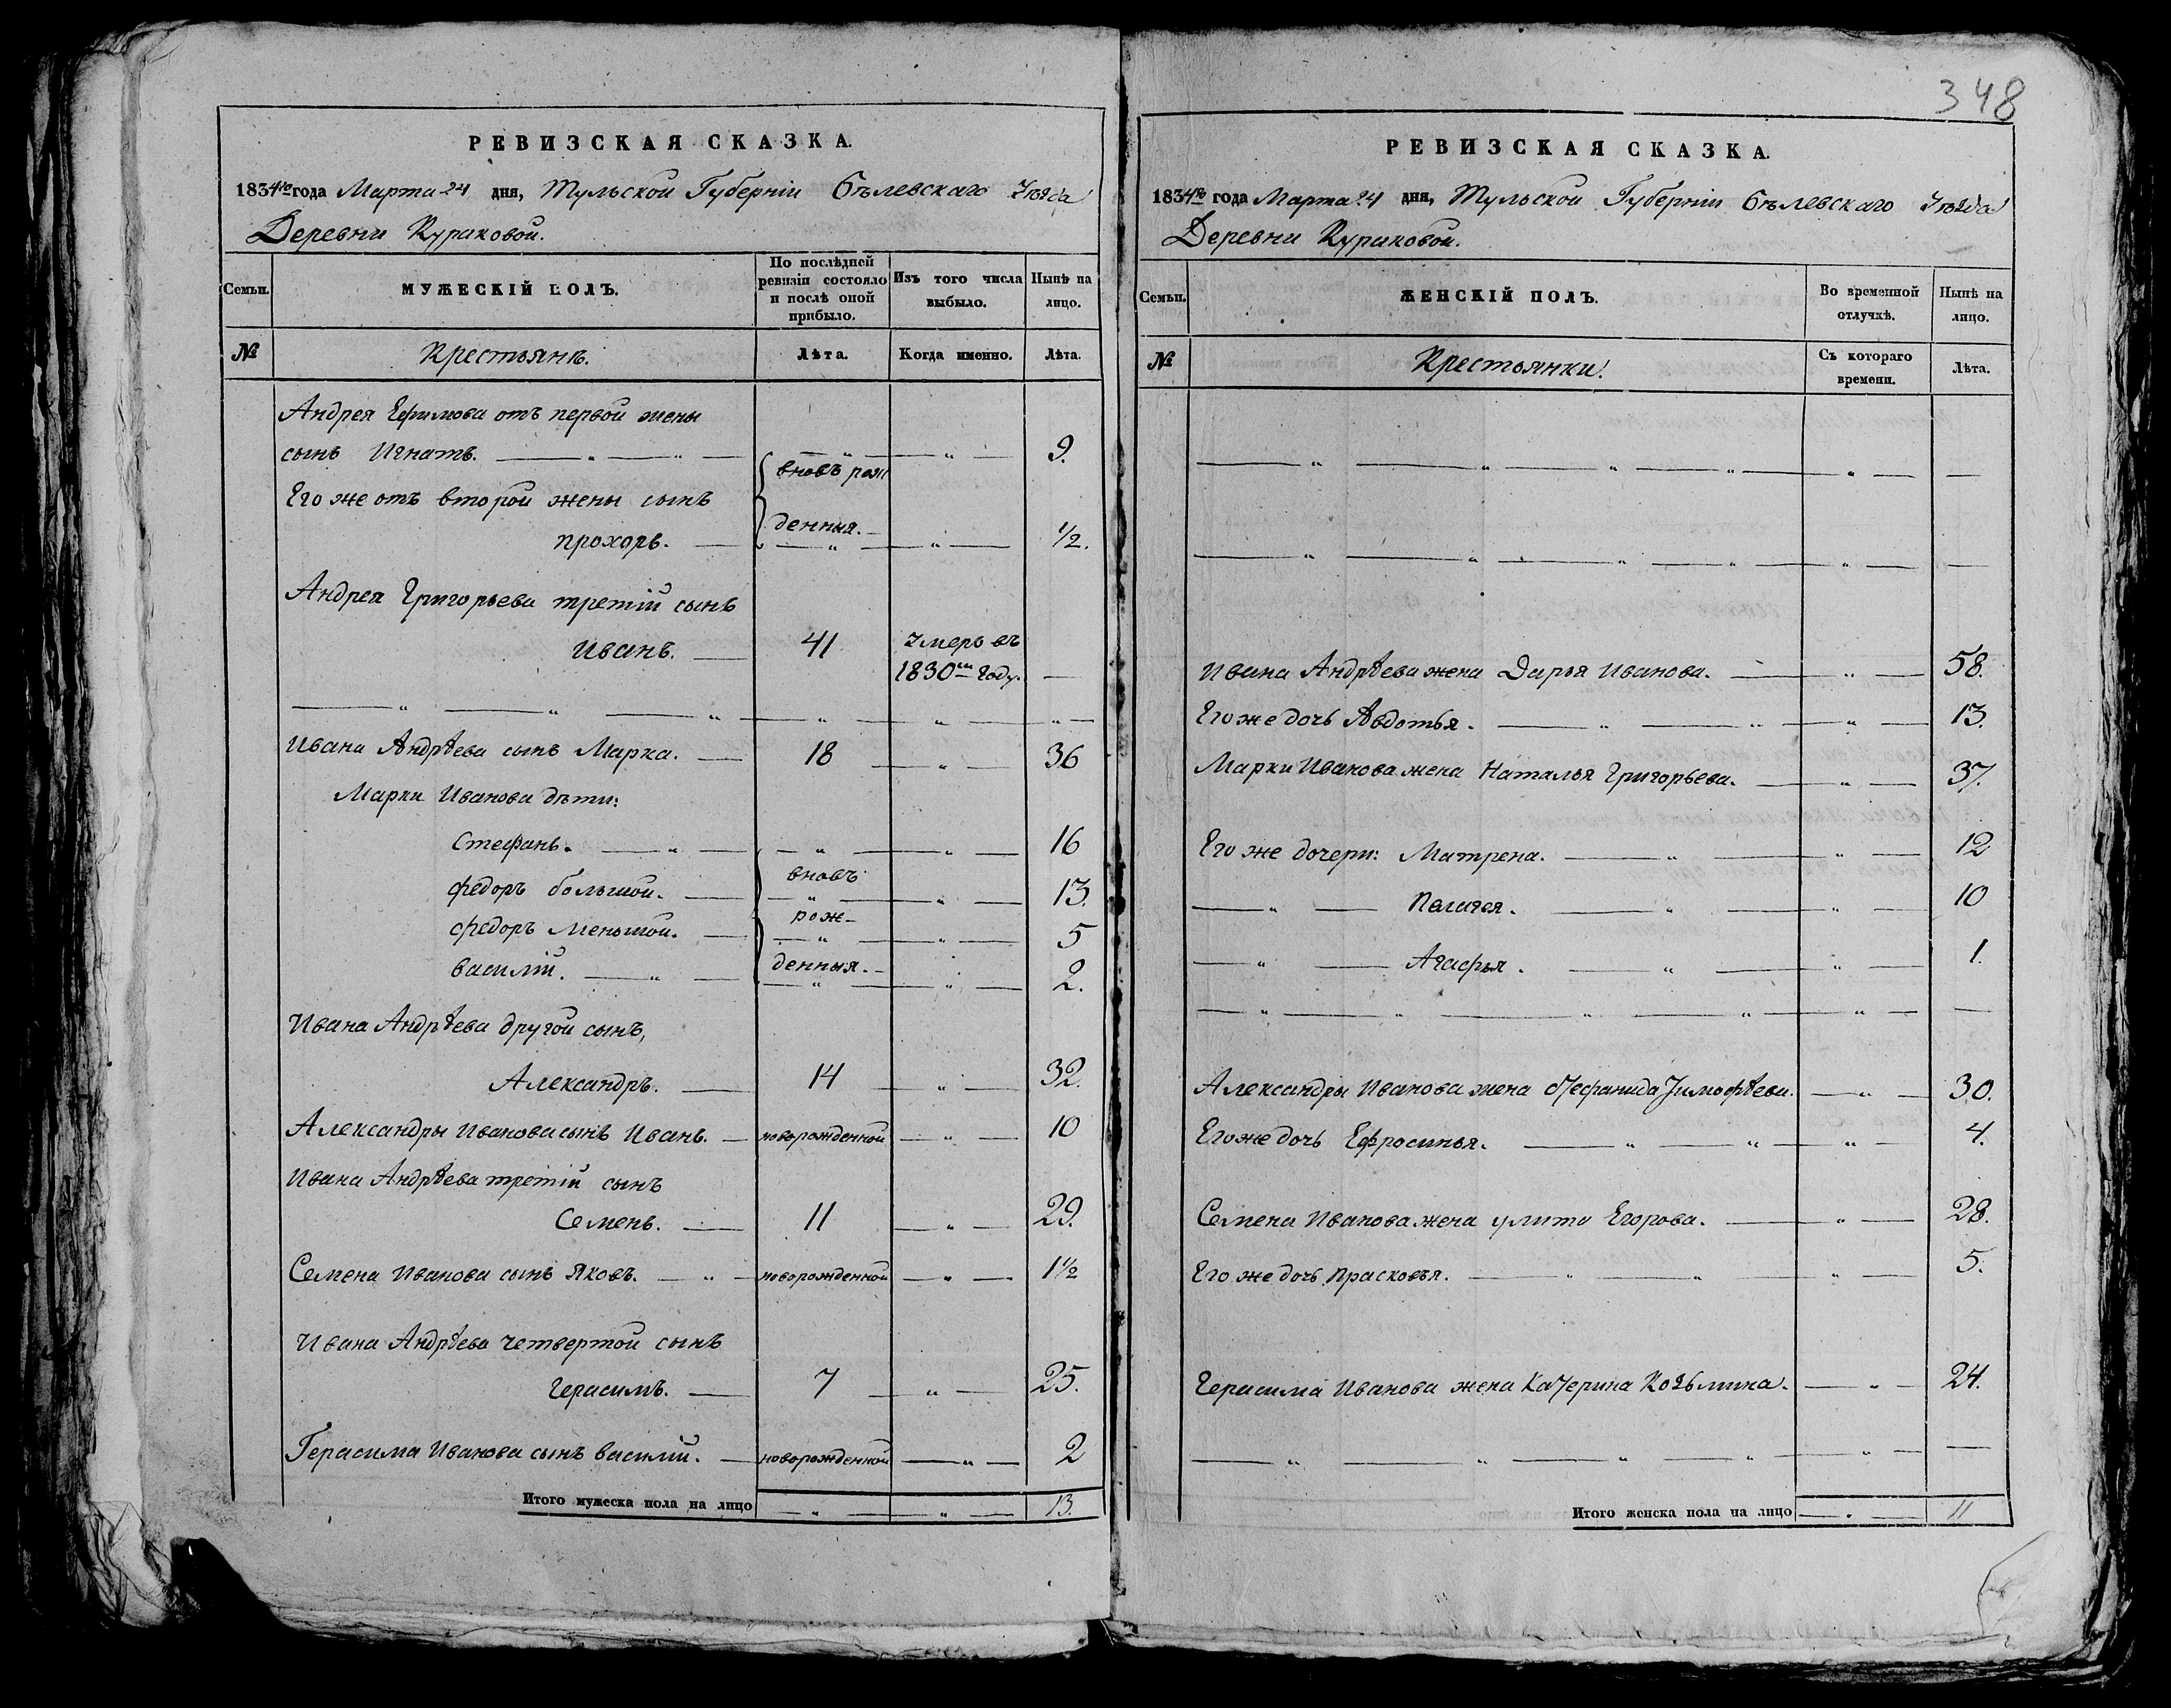 348
РЕВИЗСКАЯ СКАЗКА.
1834го года Марта 24 дня, Тульской Губерніи Бѣлевскаго Уѣзда
Деревни Кураковой.
Семьи.
МУЖЕСКІЙ ПОЛЪ.
По послѣдней ревизіи состояло и послѣ оной прибыло.
Изъ того числа выбыло.
Нынѣ на лицо.
№
Крестьянѣ.
Лѣта.
Когда именно.
Лѣта.
Андрея Ефимова отъ первой жены
сынъ Игнатъ. 9.
Его же отъ второй жены сынъ
вновь рож
денныя.
прохоръ. 1/2.
Андрея Григорьева третій сынъ
Иванъ. 41 Умеръ въ
1830м году.
Ивана Андрѣева сынъ Марка. 18 36
Марки Иванова дѣти:
Стефанъ. 16
вновь
федоръ большой. 13.
рож-
федоръ Меньшой. 5
василій. денныя. 2.
Ивана Андрѣева другой сынъ,
Александръ. 14 32.
Александры Иванова сынъ Иванъ. новорожденной 10
Ивана Андрѣева третій сынъ
Семенъ. 11 29.
Семена Иванова сынъ Яковъ. новорожденной 1 1/2
Ивана Андрѣева четвертой сынъ
Герасимъ. 7 25.
Герасима Иванова сынъ василій. новорожденной 2
Итого мужеска пола на лицо 13.
РЕВИЗСКАЯ СКАЗКА.
1834го года Марта 24 дня, Тульской Губерніи Бѣлевскаго Уѣзда
Деревни Кураковой.
Семьи.
ЖЕНСКІЙ ПОЛЪ.
Во временной отлучкѣ.
Нынѣ на лицо.
№
Крестьянки.
Съ котораго времени.
Лѣта.
Ивана Андрѣева жена Дарья Иванова. 58.
Его же дочь Авдотья. 13.
Марки Иванова жена Наталья Григорьева. 37.
Его же дочери: Матрена. 12
Пелагея. 10
Агафья. 1.
Александры Иванова жена Стефанида Тимофѣева. 30.
Его же дочь Ефросинья. 4.
Семена Иванова жена улита Егорова. 28.
Его же дочь прасковья. 5.
Герасима Иванова жена Катерина Козьмина. 24.
Итого женска пола на лицо 11